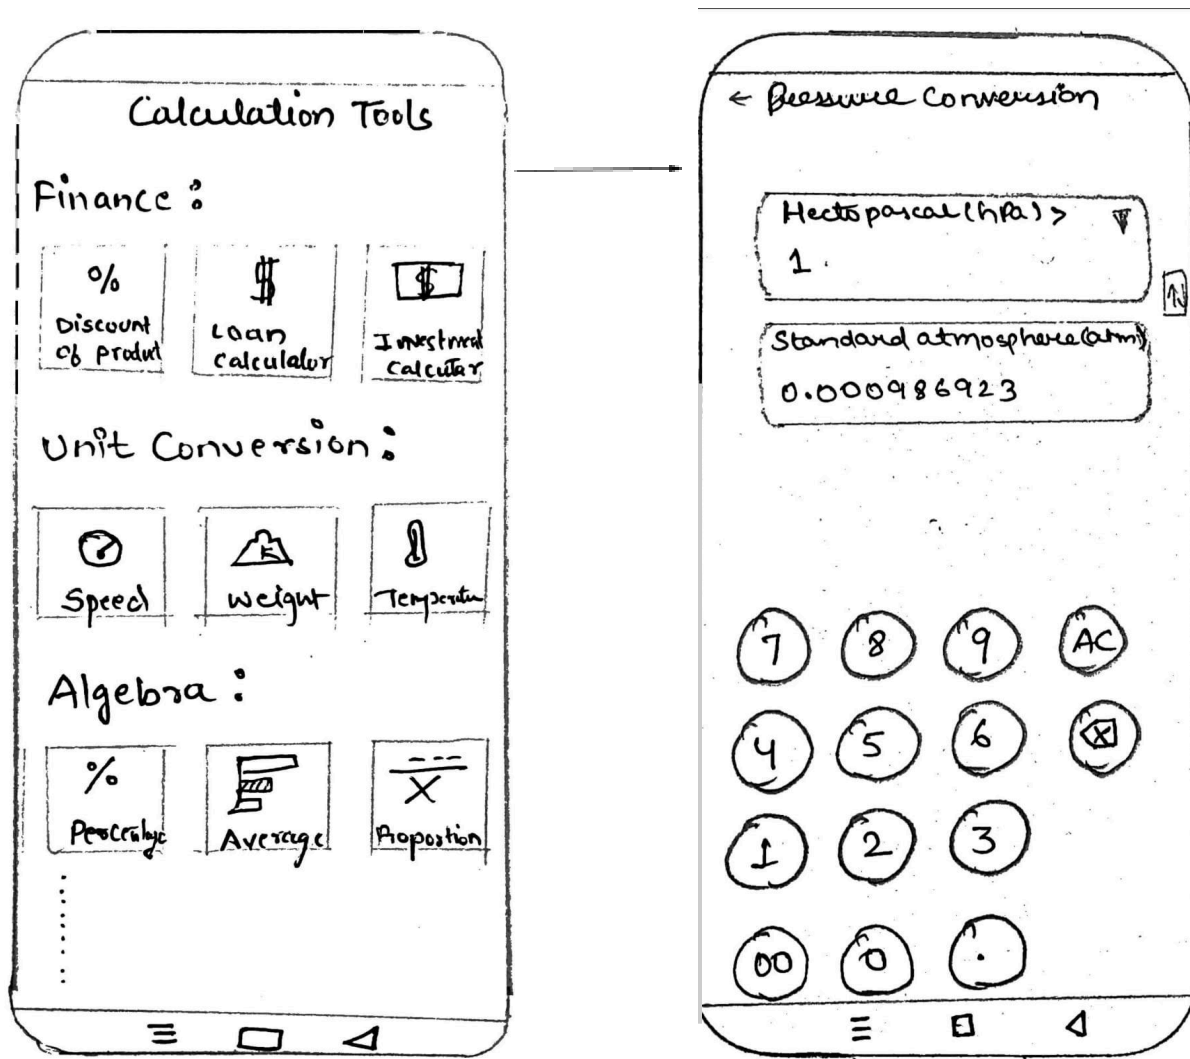 Calculation Tools
Finance :
%
Discount
of product
$
Loan
Calculator
$
Investment
Calcutar
Unit Conversion :
Speed
Weight
Algebra :
%
Percentage
Average
X
Proportion
← Pressure Conversion
Hectopascal (hPa) >
1
Standard atmosphere (atm)
0.000986923
7 8 9 AC
4 5 6 X
1 2 3
00 0 .